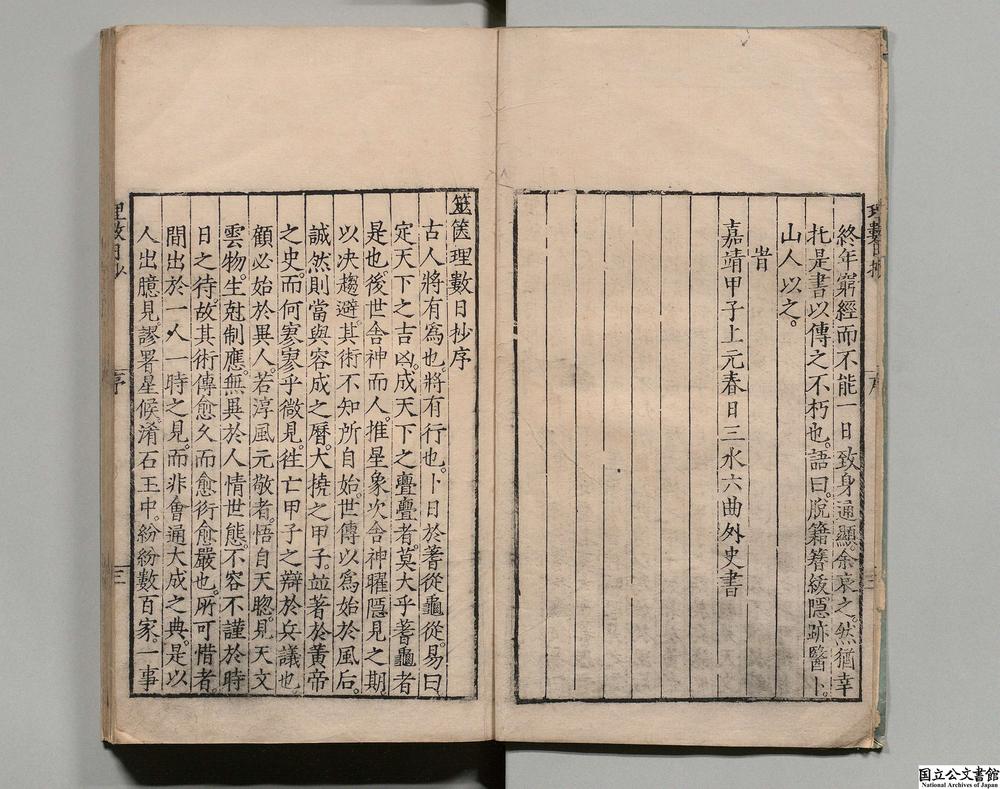 終年窮經而不能一日致身通顯。余哀之。然猶幸
托是書以傳之不朽也。語曰。脫籍簪紱。隱跡醫卜。
山人以之。
旹
嘉靖甲子上元春日三水六曲外史書
筮篋理數日抄序
古人將有爲也。將有行也。卜日於蓍從龜從。易曰
定天下之吉凶。成天下之亹亹者。莫大乎蓍龜者
是也。後世舍神而人。推星象次舍神曜隱見之期
以决趨避。其術不知所自始。世傳以爲始於風后。
誠然則當與容成之曆。大撓之甲子。並著於黃帝
之史。而何寥寥乎微見。徃亡甲子之辯於兵議也。
顧必始於異人。若淳風元敬者。悟自天聦。見天文
雲物。生尅制應。無異於人情世態。不容不謹於時
日之待。故其術傳愈久而愈衍愈嚴也。所可惜者。
間出於一人一時之見。而非會通大成之典。是以
人出臆見。謬署星候。淆石王中。紛紛數百家。一事
理數日抄
序
三
国立公文書館
National Archives of Japan